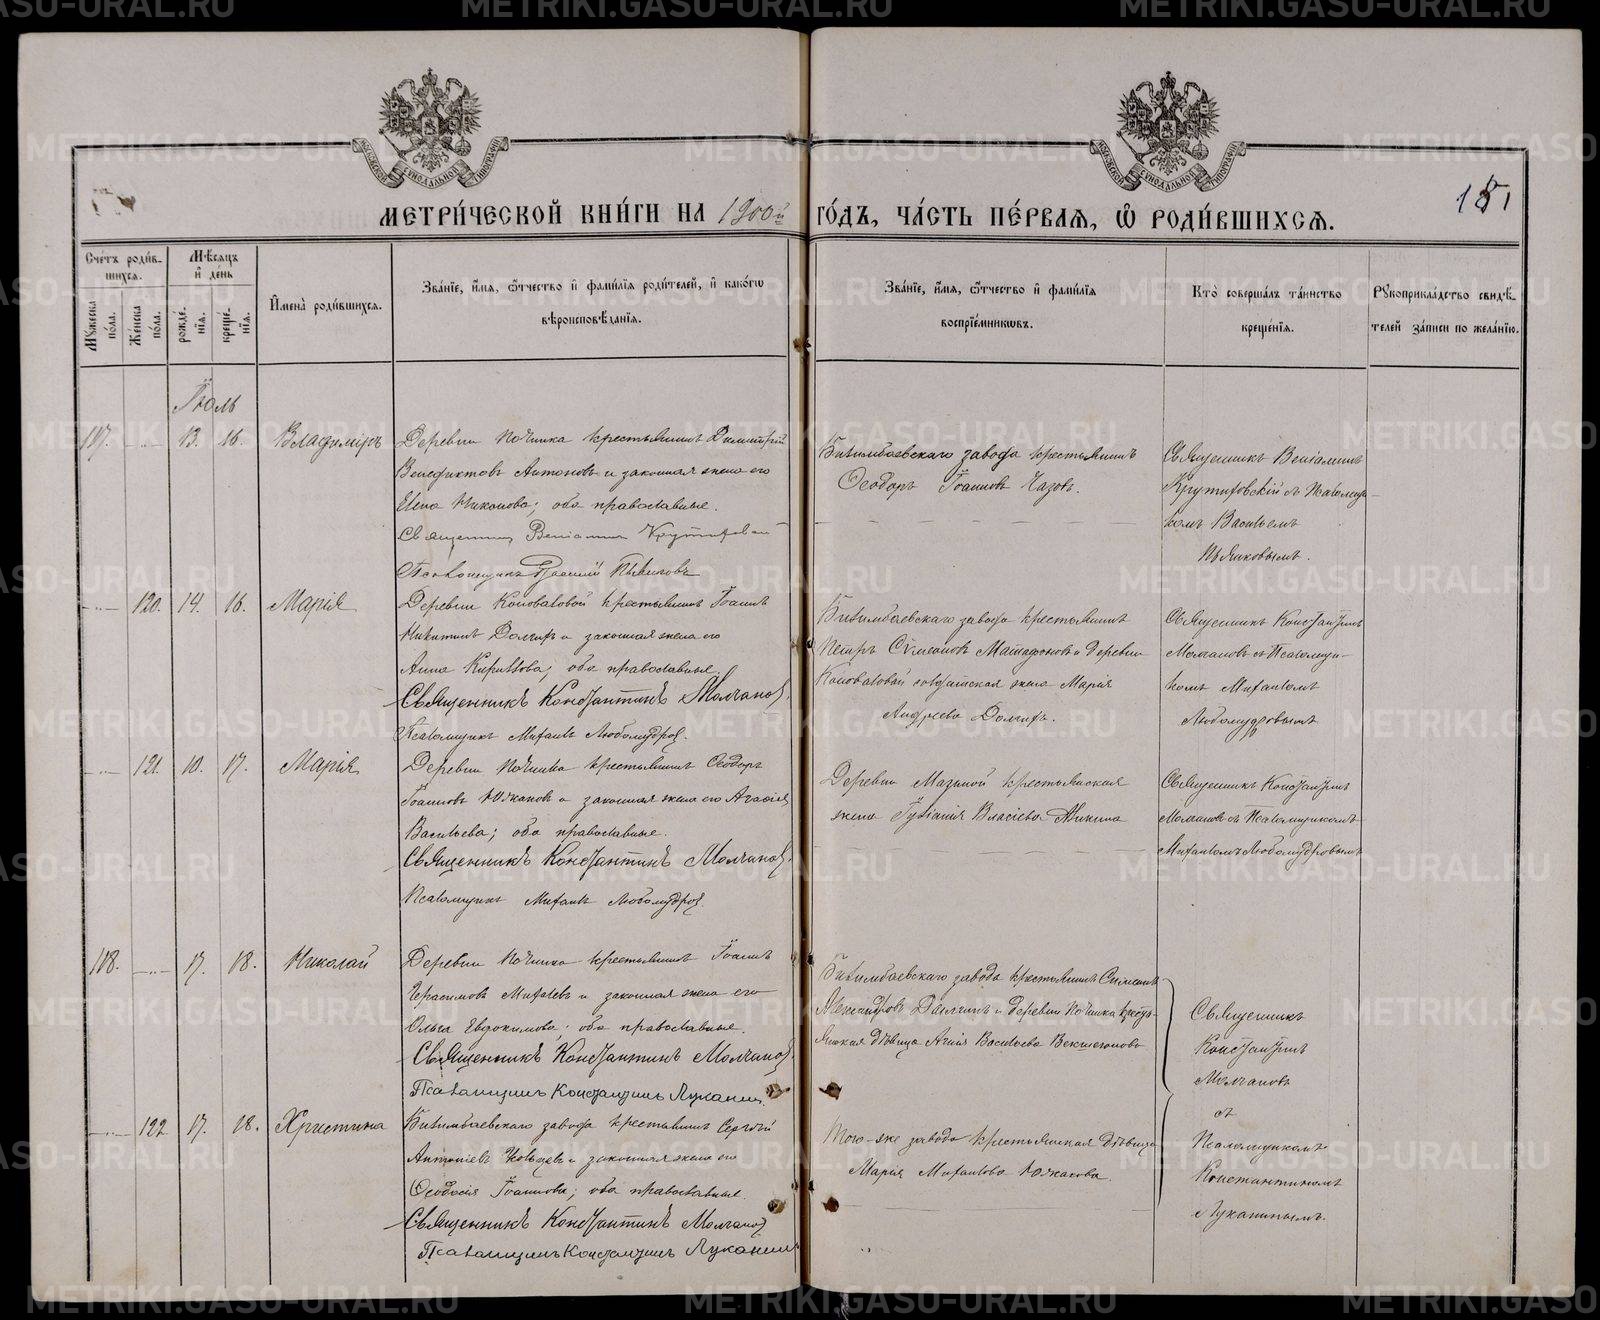 METRIKI.GASO-URAL.RU
МЕТРИ́ЧЕСКОЙ КНИ́ГИ НА 1900й ГО́ДЪ, ЧА́СТЬ ПЕ́РВАЯ, Ѿ РОДИ́ВШИХСЯ.
151
Счетъ роди́вшихся.
Му́жеска по́ла.
Же́нска по́ла.
Мѣ́сяцъ и́ де́нь
рожде́нїя.
креще́нїя.
И҆мена̀ роди́вшихся.
Зва́нїе, и҆́мя, ѻ҆́тчество и҆ фами́лїя роди́телей, и҆ како́гѡ
вѣроисповѣ́данїя.
Зва́нїе, и҆́мя, ѻ҆́тчество и҆ фами́лїя
воспрїе́мникѡвъ.
Кто̀ соверша́лъ та́инство
креще́нїя.
Рукоприкла́дство свидѣ́-
телей за́писи по жела́нїю.
Іюль
117. 13. 16. Владиміръ
Деревни Починка крестьянинъ Димитрій
Венедиктовъ Антоновъ и законная жена его
Елена Никонова; оба православные.
Священник Вениамин Крутиховский
Псаломщикъ Василій Пьянковъ
Билимбаевскаго завода крестьянинъ
Ѳеодоръ Іоанновъ Чазовъ.
Священникъ Веніаминъ
Крутиховскій съ Псаломщи-
комъ Васильемъ
Пьянковымъ.
120. 14. 16. Марія
Деревни Коноваловой крестьянинъ Іоаннъ
Никитинъ Долгихъ и законная жена его
Анна Кириллова; оба православные.
Священникъ Константинъ Молчановъ.
Псаломщикъ Михаилъ Любомудровъ.
Билимбаевскаго завода крестьянинъ
Петръ Симеоновъ и Деревни
Коноваловой солдатская жена Марія
Андреева Долгихъ.
Священникъ Константинъ
Молчановъ съ Псаломщи-
комъ Михаиломъ
Любомудровымъ
121. 10. 17. Марія
Деревни Починка крестьянинъ Ѳеодоръ
Іоанновъ Южаковъ и законная жена его Агафія
Васильева; оба православные.
Священникъ Константинъ Молчановъ.
Псаломщикъ Михаилъ Любомудровъ.
Деревни Мазиной крестьянская
жена Іуліанія Власіева Аникина
Священникъ Константинъ
Молчановъ съ Псаломщикомъ
Михаиломъ Любомудровымъ
118. 17. 18. Николай
Деревни Починка крестьянинъ Іоаннъ
Герасимовъ Михалевъ и законная жена его
Ольга Евдокимова; оба православные.
Священникъ Константинъ Молчановъ
Псаломщикъ Константинъ Луканинъ.
Билимбаевскаго завода крестьянинъ Симеонъ
Александровъ и деревни Починка кресть-
янская дѣвица Агнія Васильева
Священникъ
Константинъ
Молчановъ
съ
Псаломщикомъ
Константиномъ
Луканинымъ.
122 17. 18. Христина
Билимбаевскаго завода крестьянинъ Сергѣй
Антоніевъ и законная жена его
Ѳеодосія Іоаннова; оба православные.
Священникъ Константинъ Молчановъ
Псаломщикъ Константинъ Луканинъ
Того-же завода крестьянская дѣвица
Марія Михаилова Южакова.